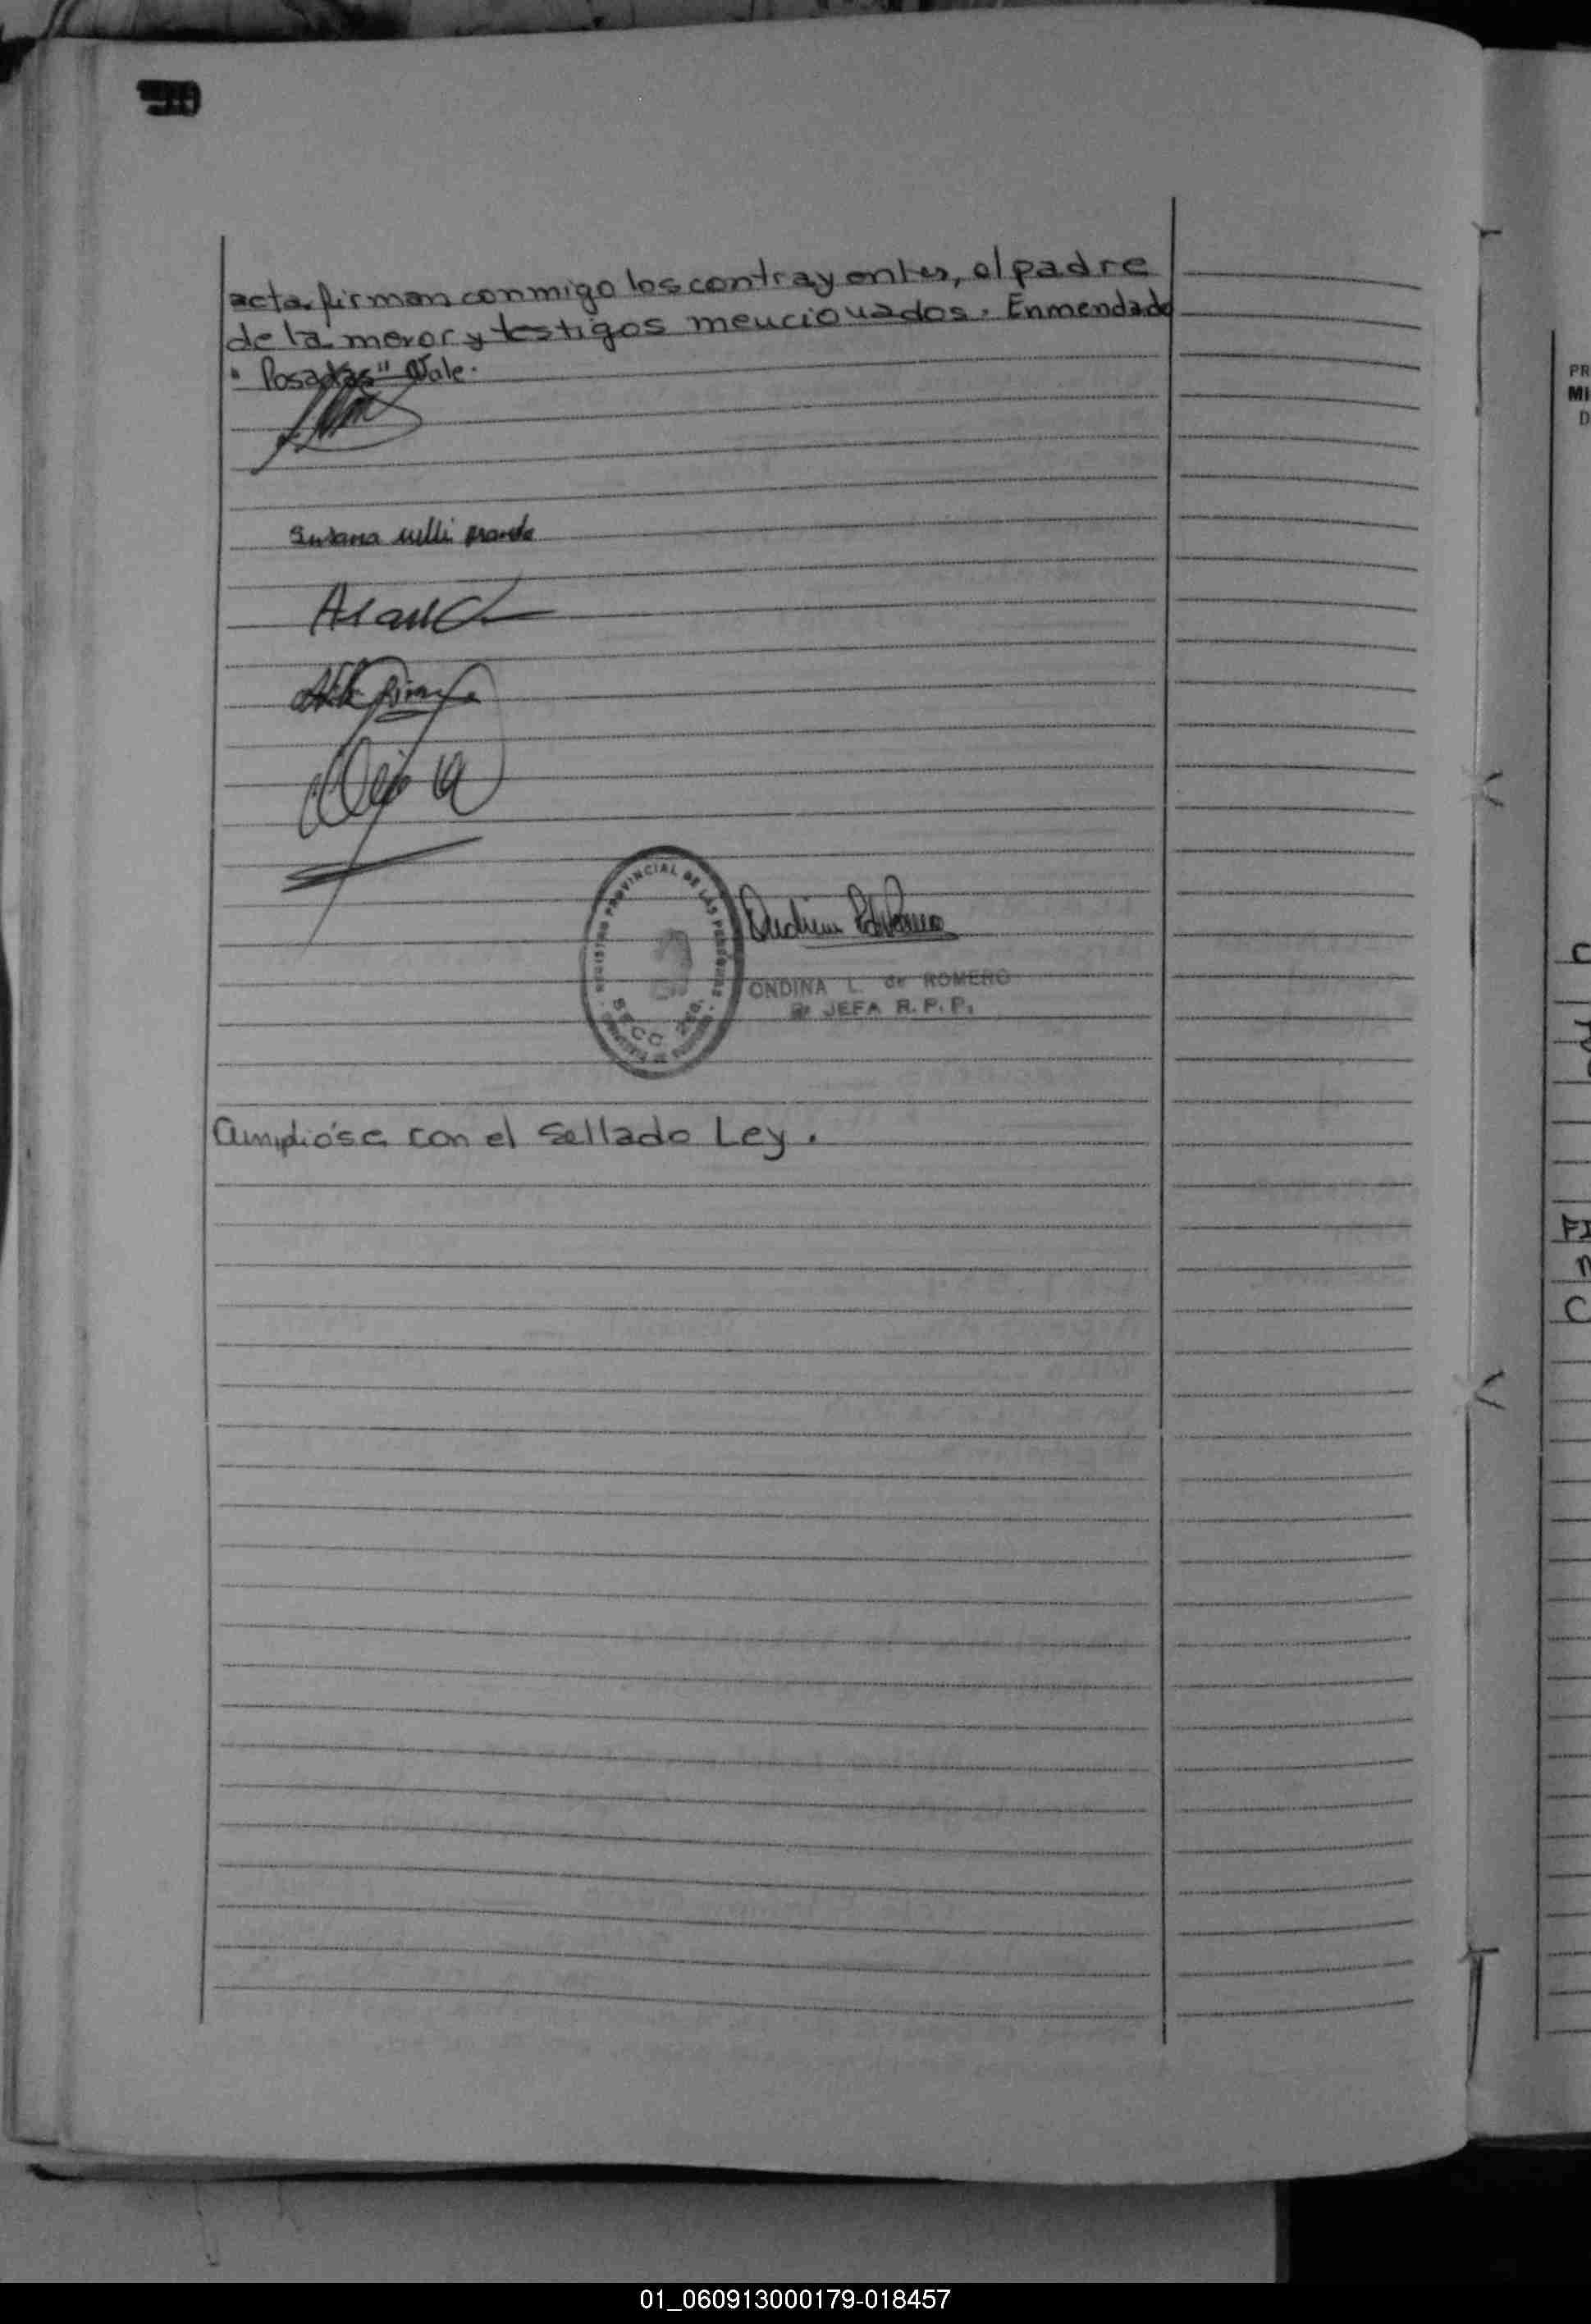 acta firman conmigo los contrayentes, el padre
de la menor y testigos mencionados. Enmendado
"Posadas" Vale.
Susana
REGISTRO PROVINCIAL DE LAS PERSONAS
SECC.
ONDINA L. de ROMERO
JEFA R.P.P.
Cumplióse con el Sellado Ley.
PR
MI
D
C
FI
n
C
01_060913000179-018457